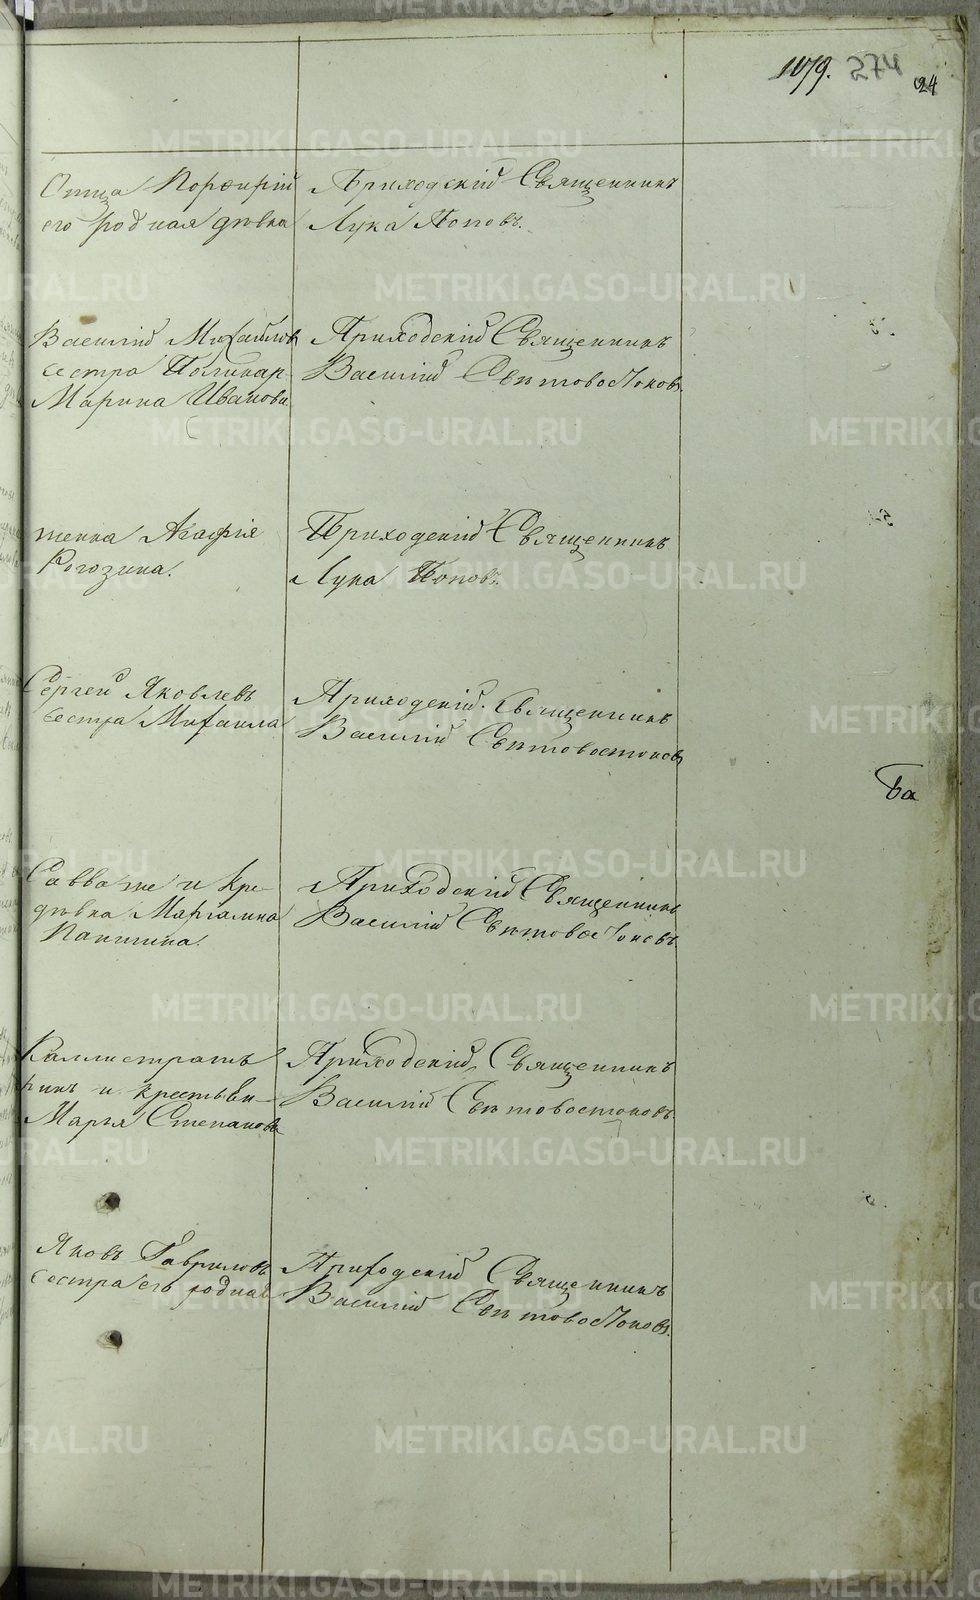 1079. 274
24
Отца Порфирій
его родная дѣвка
Приходскій Священникъ
Лука Поповъ.
Василій Михайловъ
сестра Поликар
Марина Иванова
Приходскій Священникъ
Василій Свѣтовостоковъ.
женка Агафія
Рогозина.
Приходскій Священникъ
Лука Поповъ.
Сергей Яковлевъ
сестра Михаила
Приходскій Священникъ
Василій Свѣтовостоковъ
Савва же и Кре-
дѣвка Мариамна
Паншина.
Приходскій Священникъ
Василій Свѣтовостоковъ.
Каллистратъ
и крестьян-
Марья Степанова
Приходскій Священникъ
Василій Свѣтовостоковъ.
Яковъ Гавриловъ
сестра его родная
Приходскій Священникъ
Василій Свѣтовостоковъ.
Ба
METRIKI.GASO-URAL.RU